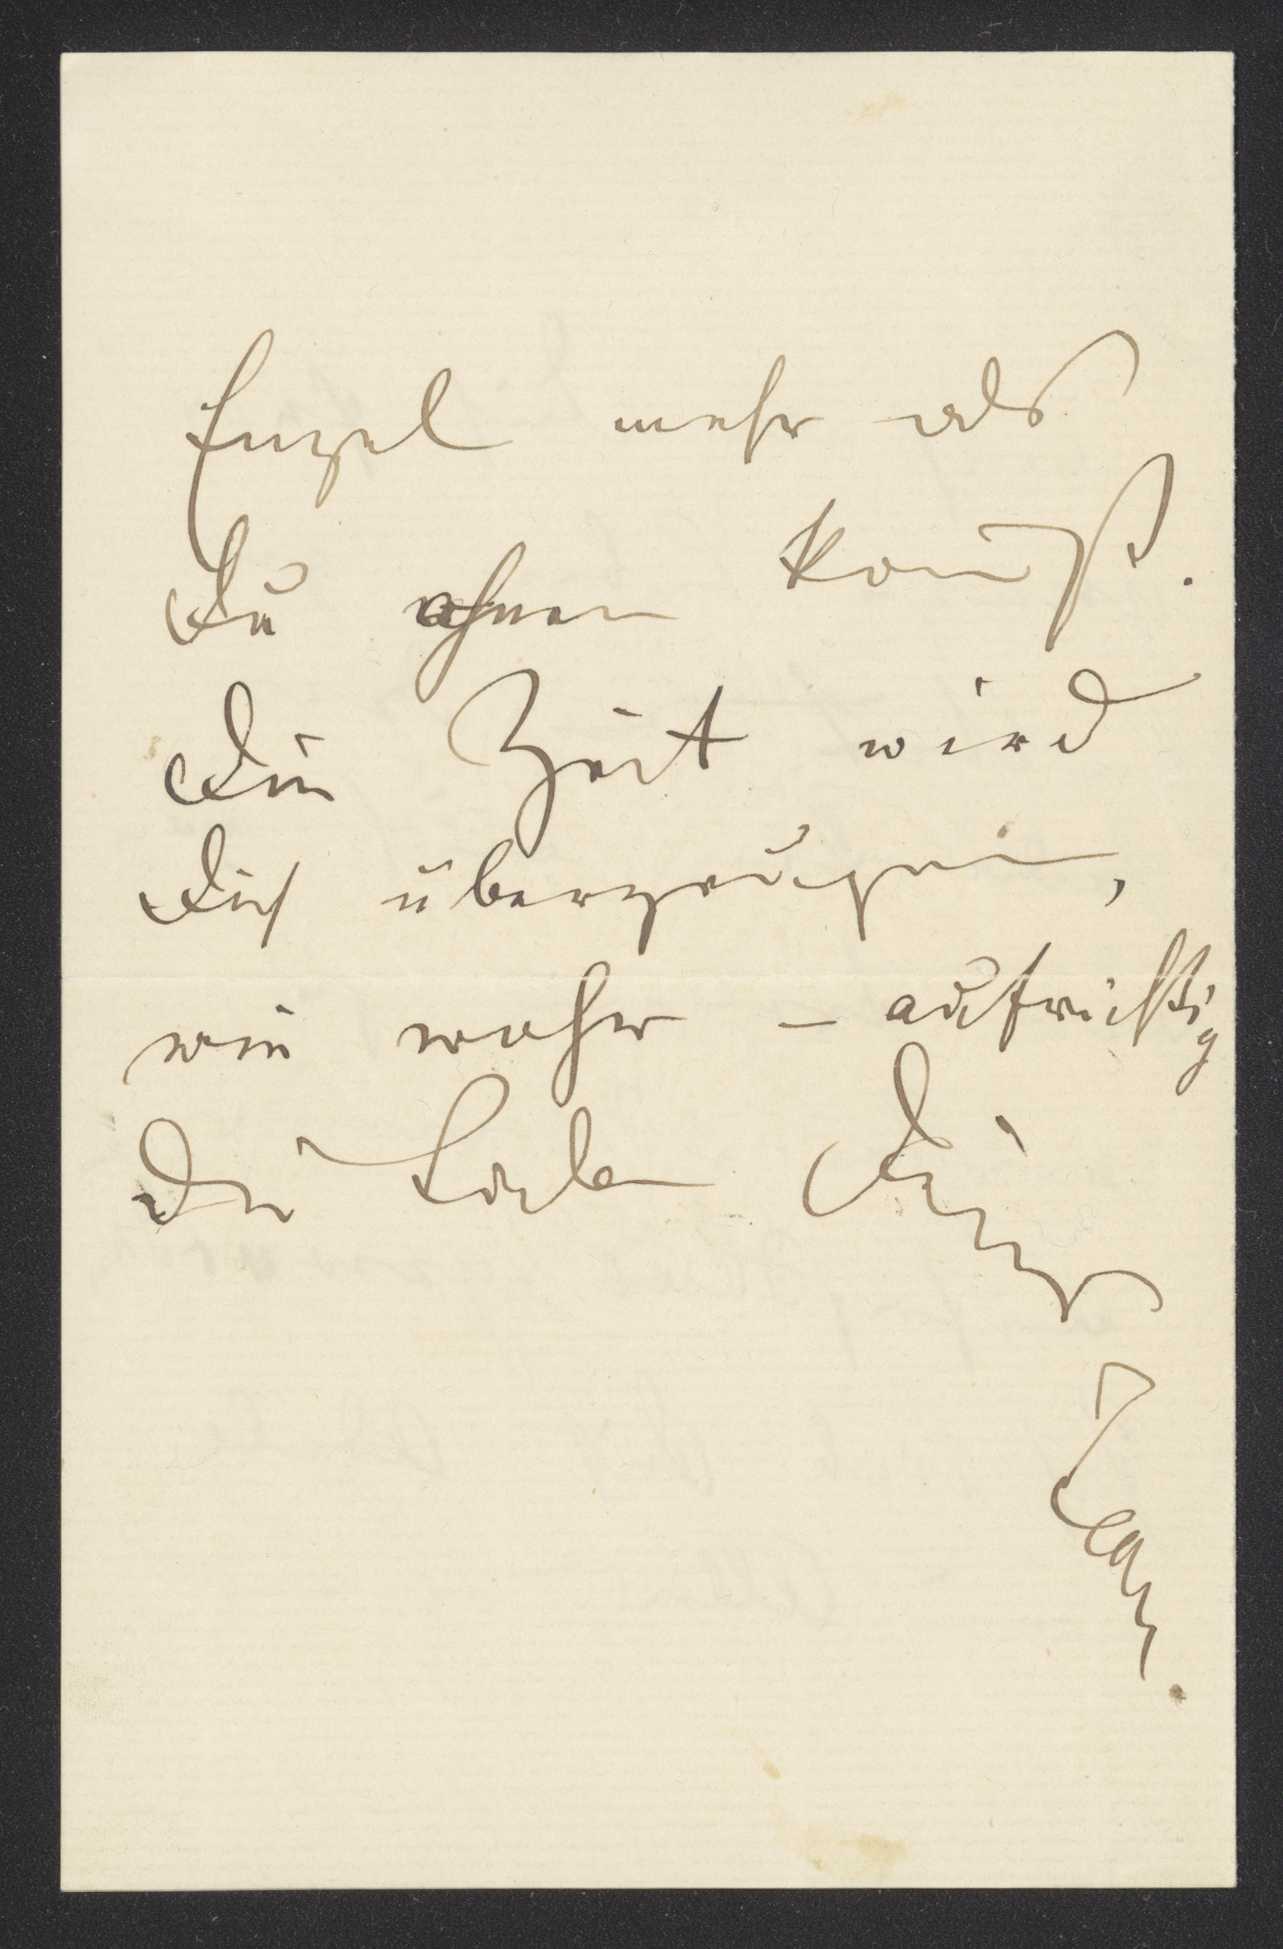 Engel mehr als
Du ahnen kannst.
Die Zeit wird
Dich überzeugen,
wie wahr – aufrichtig
Die Liebe Deines
Jean.